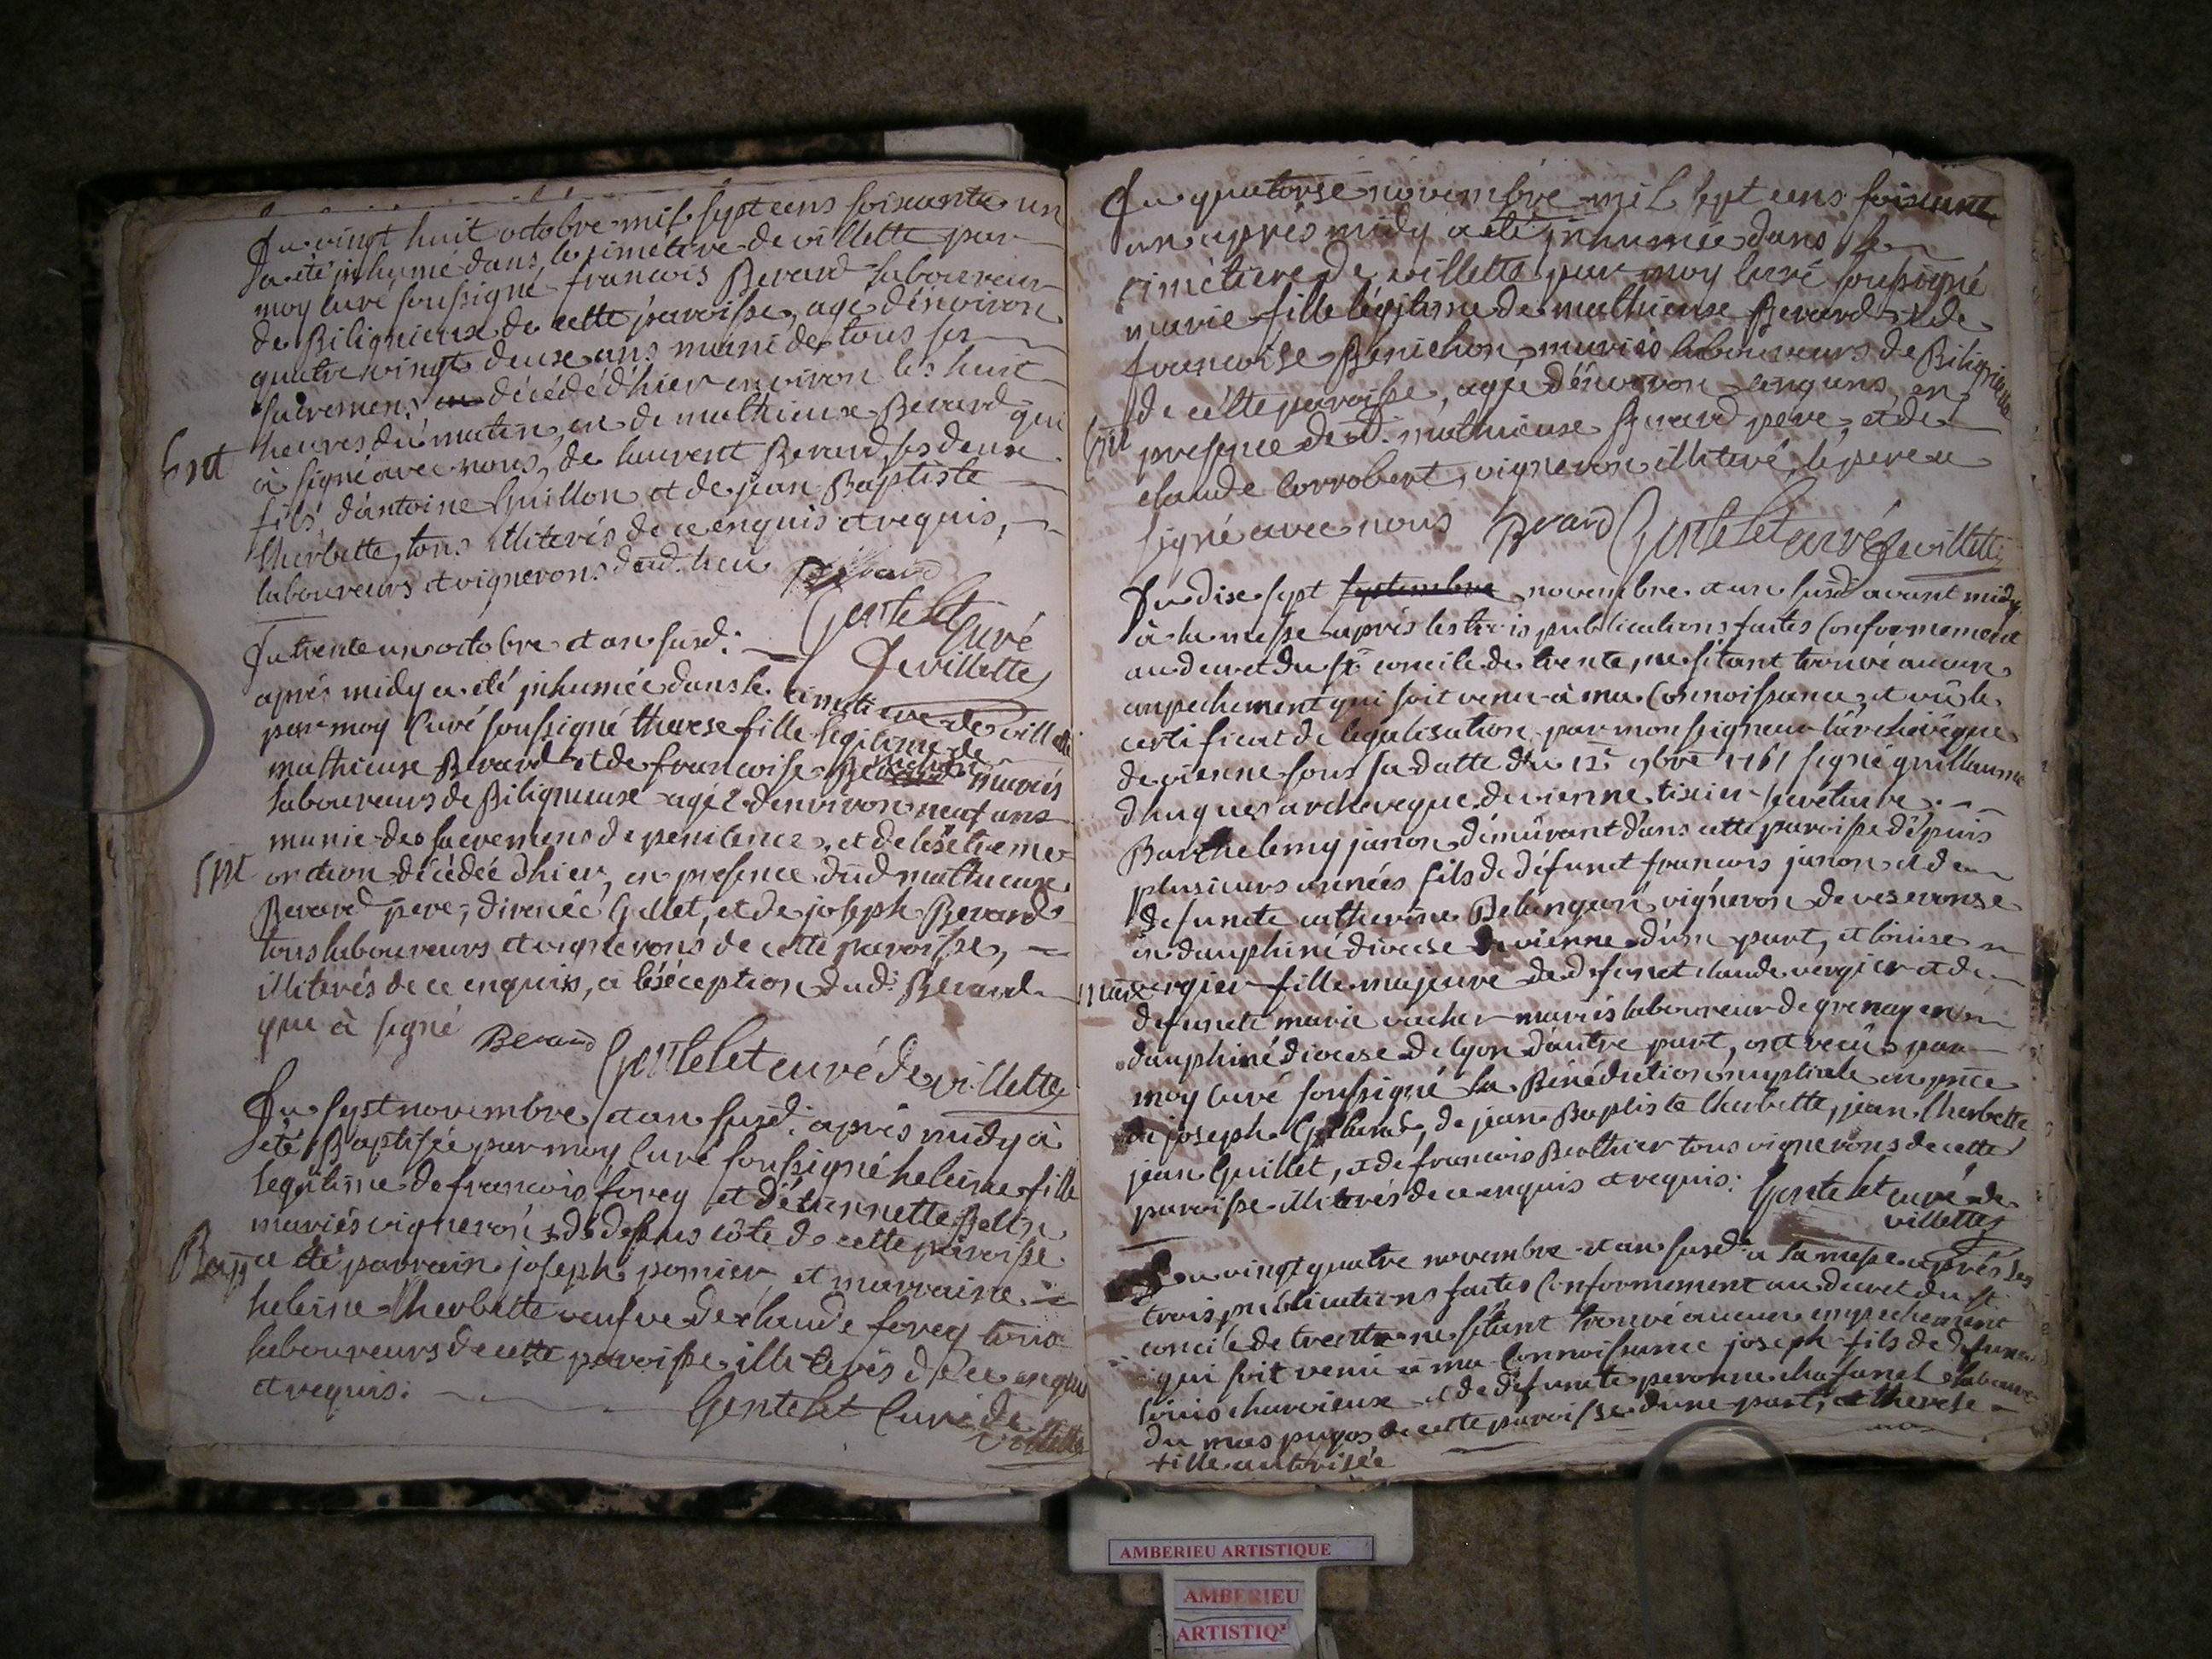 Du vingt huit octobre mil sept cens soixante un
a été inhumé dans le cimetiere de villette par
moy curé soussigné francois Berard laboureur
de Biligneux de cette paroisse, agé d'environ
quatre vingt deux ans muni de tous ses
sacremens décédé d'hier environ les huit
heures du matin, en de mathieux Berard qui
à signé avec nous, de laurent Berard ses deux
fils, d'antoine Guillon et de jean Baptiste
lherbette, tous illiterés de ce enquis et requis,
laboureurs et vignerons dud. lieu Berard
Gentelet
curé
De villette
Du trente un octobre et an susd:
après midy a été inhumée dans le cimetiere de villette
par moy Curé soussigné therese fille legitime de
mathieux Berard et de francoise mariés
laboureurs de Biligneux agée d'environ neuf ans
munie des sacremens de penitence, et de l'éxtreme
onction décédée d'hier, en presence dud mathieux
Berard pere, Gillet, et de joseph Berard
tous laboureurs et vignerons de cette paroisse,
illiterés de ce enquis, a l'éxception dud: Berard
qui à signé Berard Gentelet curé de villette
Du sept novembre et an susd: après midy à
été Baptisée par moy Curé soussigné heleine fille
legitime de francois forey et d'étiennette Belin
mariés vignerons de dessus côte de cette paroisse
Bap a été parrain joseph pomier et marraine
heleine lherbette veufve de claude forey tous
laboureurs de cette paroisse illiterés de ce enquis
et requis: Gentelet Curé de
villette
Du quatorse novembre mil sept cens soixante
un après midy a été inhumée dans le
cimetiere de villette par moy curé soussigné
marie fille légitime de mathieux Berard et de
francoise Benichon mariés laboureurs de Biligneux
de cette paroisse, agée d'environ cinq ans, en
presence dud. mathieux Berard pere, et de
claude Corrobert, vigneron illiteré, le pere a
signé avec nous Berard Gentelet curé de villette
Du dix sept septembre novembre et an susd. avant midy
à la messe après les trois publications faites Conformement
au decret du st concile de trente, ne s'étant trouvé aucun
empechement qui soit venu à ma Connoissance, et vû le
certificat de legalisation par monseigneur l'archevêque
de vienne sous sa datte du 12e 9bre 1761 signé guillaume
d'hugues archeveque de vienne, tixier secretaire.
Barthelemy janon démeurant dans cette paroisse dépuis
plusieurs années fils de défunct francois janon et de
defuncte catherine vigneron de veseronse
en dauphiné diocese de vienne d'une part, et louise
mare vergier fille majeure de defunct claude vergier et de
defuncte marie vacher mariés laboureur de grenay en
dauphiné diocese de lyon d'autre part, ont reçû par
moy Curé soussigné la Bénédiction nuptiale en pnce
de joseph de jean Baptiste lherbette, jean lherbette
jean Guillet, et de francois Berthier tous vignerons de cette
paroisse illiterés de ce enquis et requis: Gentelet curé de
villette
Du vingt quatre novembre et an susd: a la messe après les
trois publications faites Conformement au decret du st
concile de trente ne s'étant trouvé aucun empechement
qui soit venu à ma Connoissance joseph fils de defunct
louis charvieux et de défuncte peronne chafanel
du mas pugos de cette paroisse d'une part, et therese
fille autorisée
AMBERIEU ARTISTIQUE
AMBERIEU
ARTISTIQ